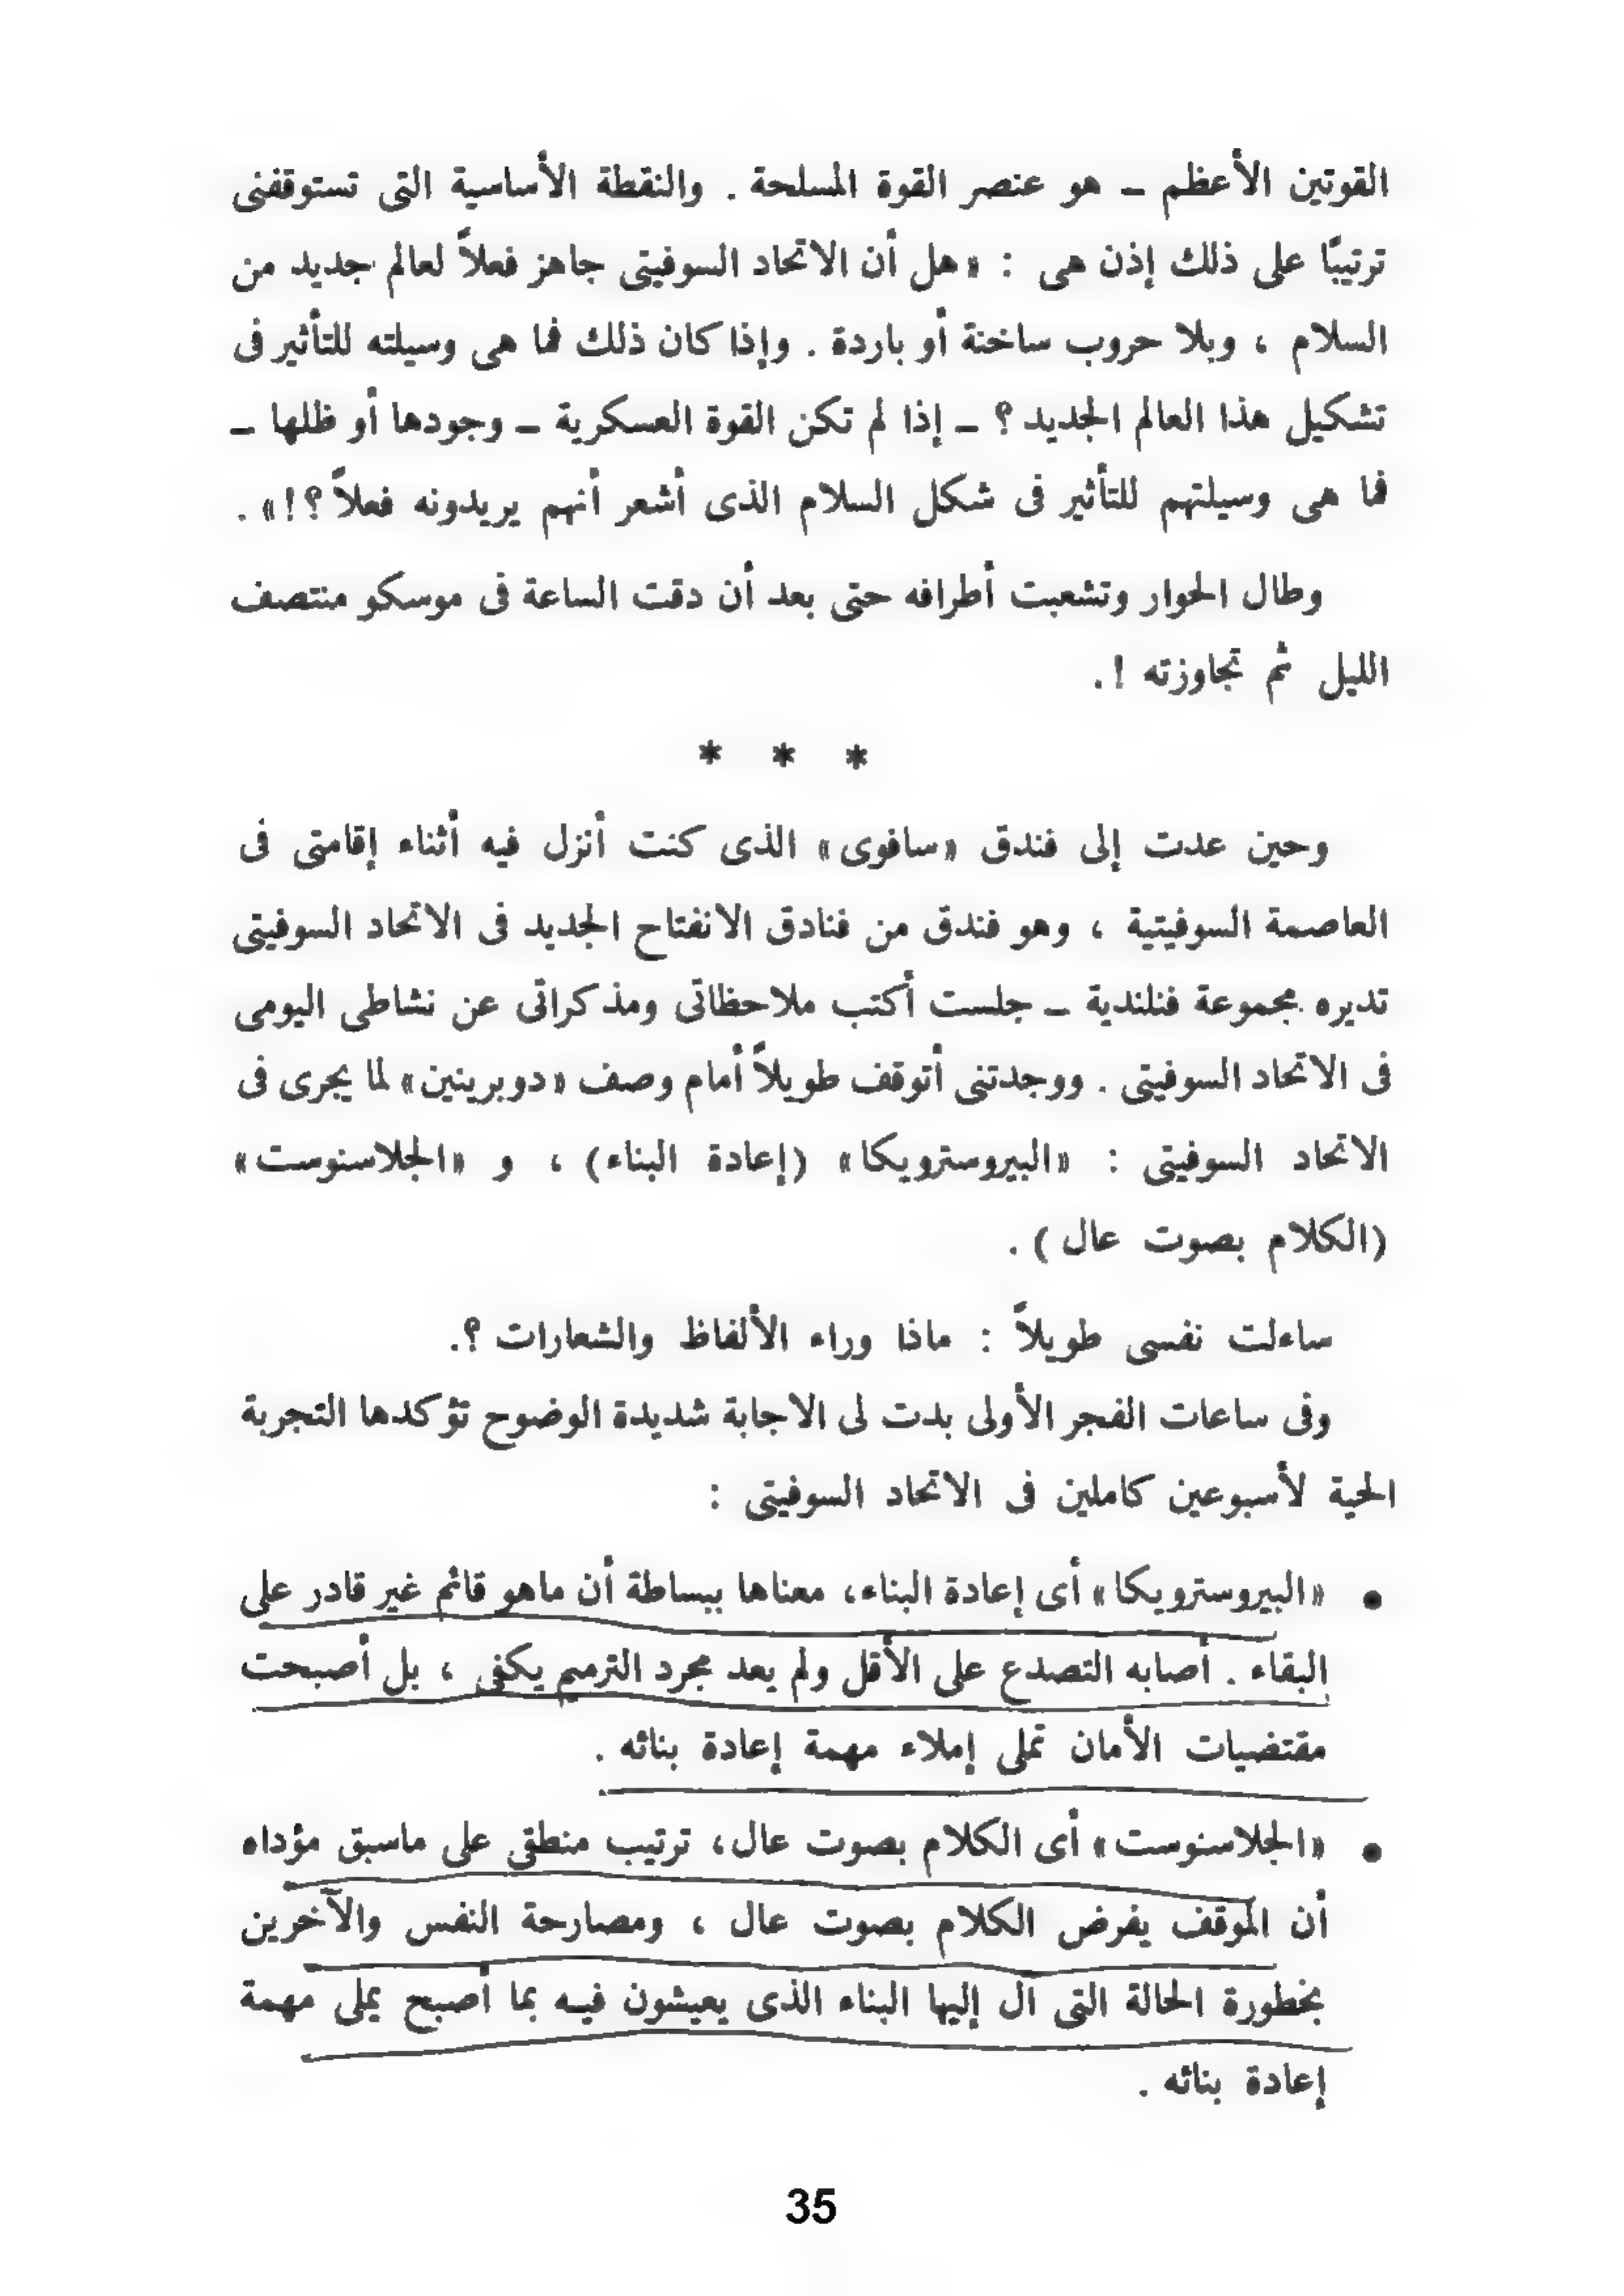 القوتين الأعظم ــ هو عنصر القوة المسلحة . والنقطة الأساسية التى تستوقفنى
ترتيبًا على ذلك إذن هى : «هل أن الاتحاد السوفيتى جاهز فعلاً لعالم جديد من
السلام ، وبلا حروب ساخنة أو باردة . وإذا كان ذلك فما هى وسيلته للتأثير فى
تشكيل هذا العالم الجديد ؟ ــ إذا لم تكن القوة العسكرية ــ وجودها أو ظلها ــ
فما هى وسيلتهم للتأثير فى شكل السلام الذى أشعر أنهم يريدونه فعلاً ؟!» .
وطال الحوار وتشعبت أطرافه حتى بعد أن دقت الساعة فى موسكو منتصف
الليل ثم تجاوزته !.
* * *
وحين عدت إلى فندق «سافوى» الذى كنت أنزل فيه أثناء إقامتى فى
العاصمة السوفيتية ، وهو فندق من فنادق الانفتاح الجديد فى الاتحاد السوفيتى
تديره مجموعة فنلندية ــ جلست أكتب ملاحظاتى ومذكراتى عن نشاطى اليومى
فى الاتحاد السوفيتى . ووجدتنى أتوقف طويلاً أمام وصف «دوبرينين» لما يجرى فى
الاتحاد السوفيتى : «البيروسترويكا» (إعادة البناء) ، و «الجلاسنوست»
(الكلام بصوت عال ) .
ساءلت نفسى طويلاً : ماذا وراء الألفاظ والشعارات ؟.
وفى ساعات الفجر الأولى بدت لى الاجابة شديدة الوضوح تؤكدها التجربة
الحية لأسبوعين كاملين فى الاتحاد السوفيتى :
● «البيروسترويكا» أى إعادة البناء، معناها ببساطة أن ماهو قائم غير قادر على
البقاء . أصابه التصدع على الأقل ولم يعد مجرد الترميم يكفى ، بل أصبحت
مقتضيات الأمان تملى إملاء مهمة إعادة بنائه .
● «الجلاسنوست» أى الكلام بصوت عال، ترتيب منطقى على ماسبق مؤداه
أن الموقف يفرض الكلام بصوت عال ، ومصارحة النفس والآخرين
بخطورة الحالة التى آل إليها البناء الذى يعيشون فيه بما أصبح يملى مهمة
إعادة بنائه .
35